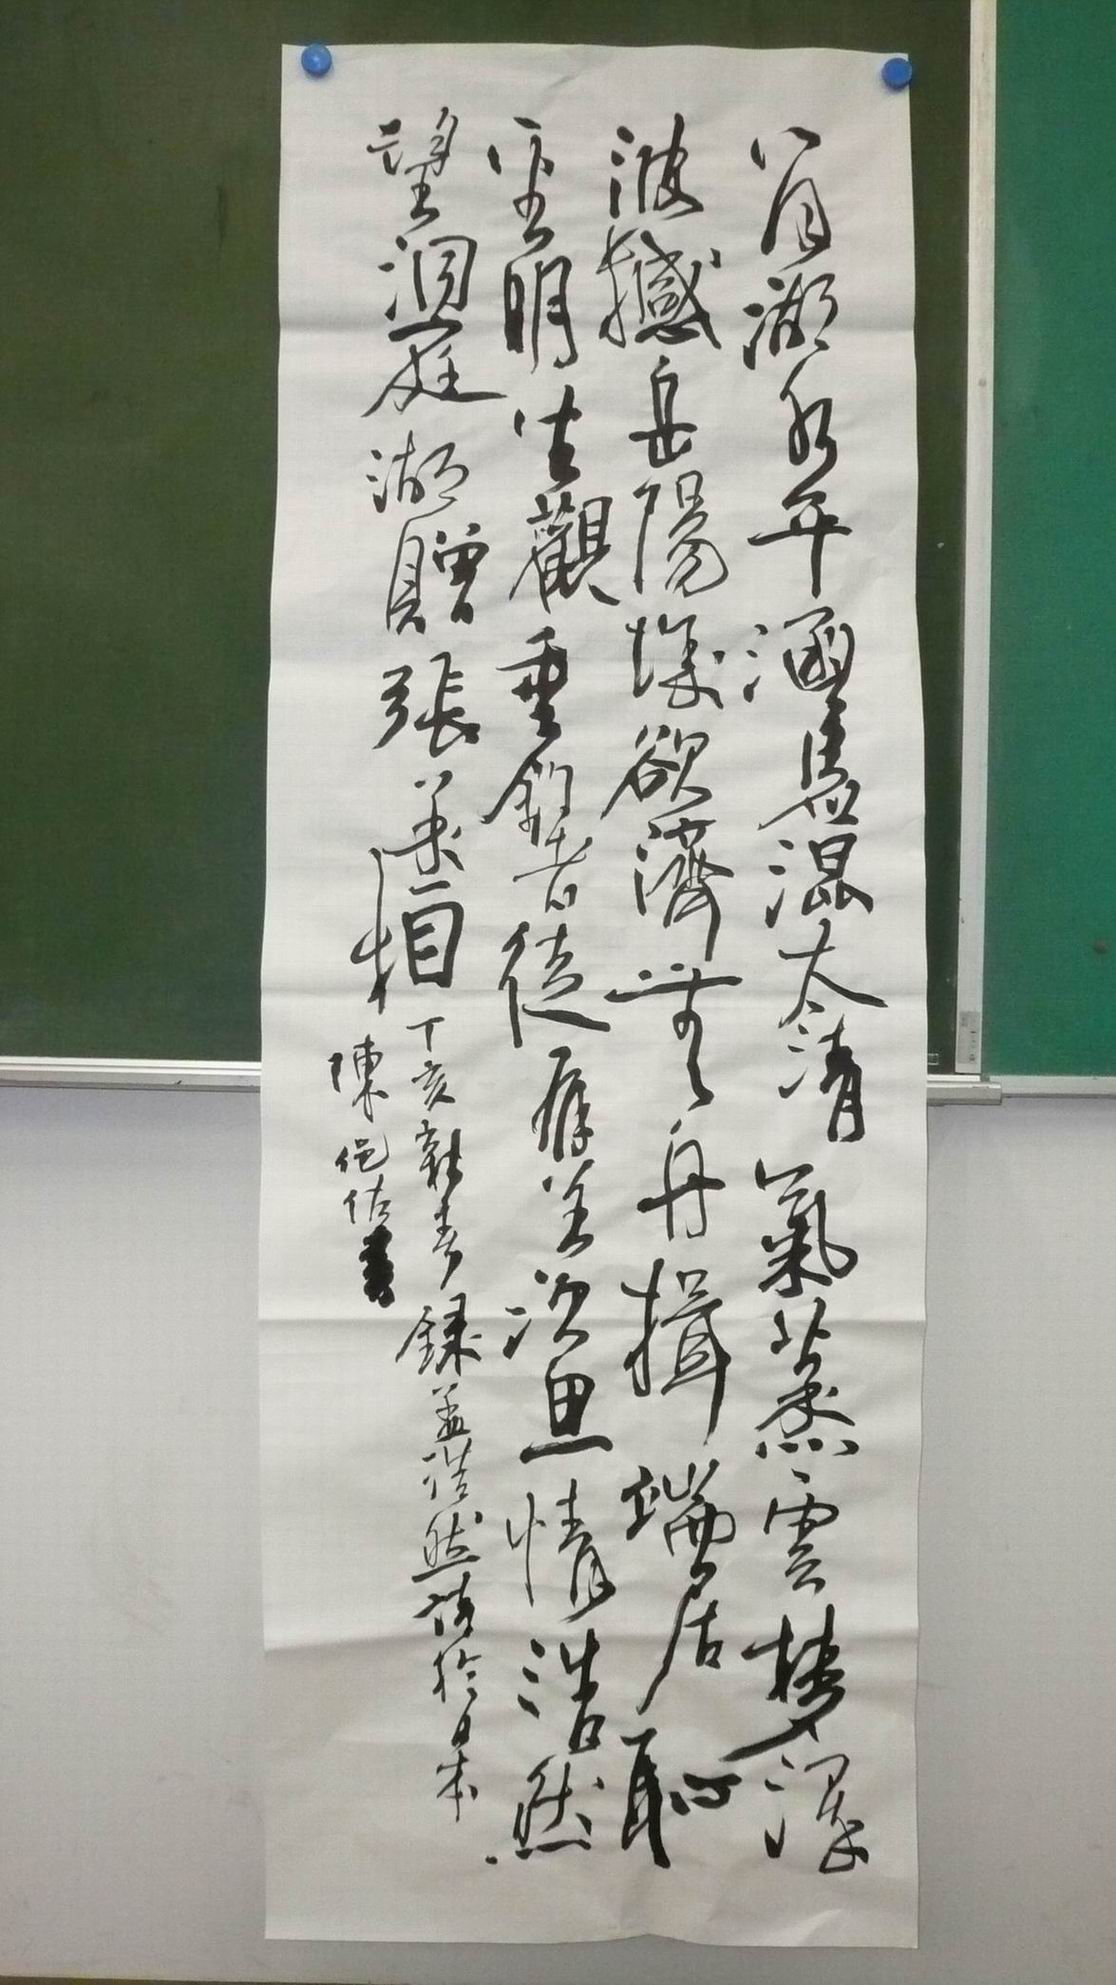 八月湖水平涵虛混太清氣蒸雲夢澤
波撼岳陽城欲濟無舟揖端居恥
聖明坐觀垂釣者徒羨魚情浩然
望洞庭湖贈張丞相
丁亥新春錄孟浩然詩於日本
陳佑書